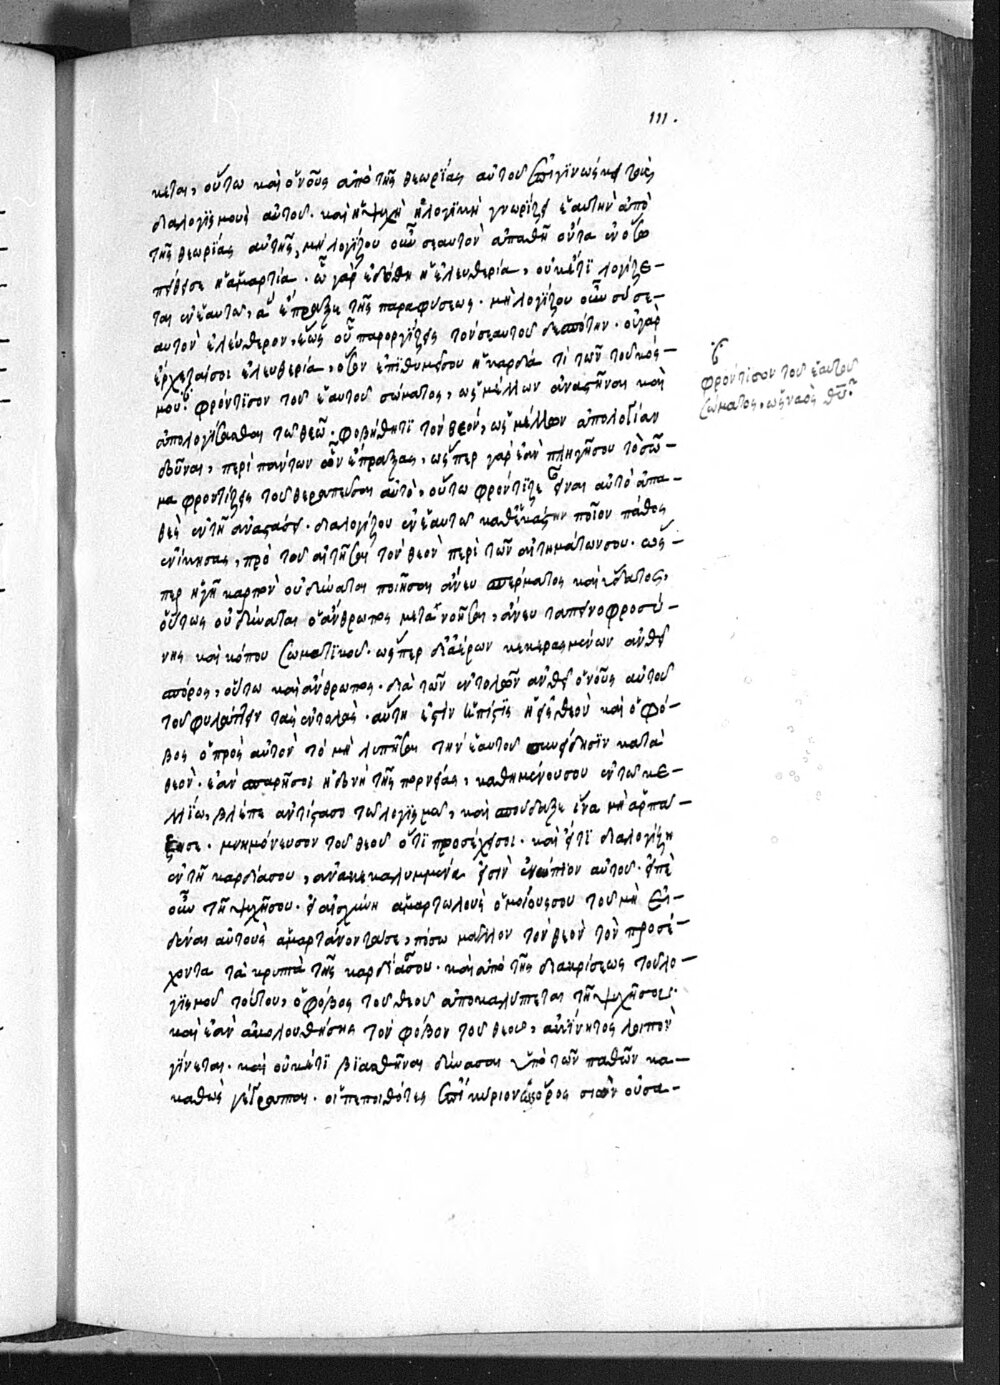 111.
κεται, οὕτω καὶ ὁ νοῦς ἀπὸ τῆς θεωρίας αὐτοῦ ἐπιγινώσκει τοὺς
διαλογισμοὺς αὐτοῦ. καὶ ἡ ψυχὴ ἡ λογικὴ γνωρίζει ἑαυτὴν ἀπὸ
τῆς θεωρίας αὐτῆς, μὴ λογίζου οὖν σεαυτὸν ἀπαθῆ ὄντα ἐν ὅσῳ
πείθει σε ἡ ἁμαρτία. ᾧ γὰρ ἐδόθη ἡ ἐλευθερία, οὐκέτι λογίζε-
ται ἐν ἑαυτῷ, ἃ ἔπραξε τῆς παραφύσεως. μὴ λογίζου οὖν σὺ σε-
αυτὸν ἐλεύθερον, ἕως οὗ παροργίζεις τὸν σεαυτοῦ δεσπότην. οὐ γὰρ
ἔρχεταί σοι ἐλευθερία, ὅσον ἐπιθυμεῖ σου ἡ καρδία τί τῶν τοῦ κόσ-
μου. φρόντισον τοῦ ἑαυτοῦ σώματος, ὡς μέλλων ἀναστῆναι καὶ
ἀπολογίσασθαι τῷ θεῷ. φοβήθητι τὸν θεόν, ὡς μέλλων ἀπολογίαν
δοῦναι, περὶ πάντων ὧν ἔπραξας, ὥσπερ γὰρ ἐὰν πληγῇ σου τὸ σῶ-
μα φροντίζεις τοῦ θεραπεῦσαι αὐτὸ, οὕτω φρόντιζε εἶναι αὐτὸ ἀπα-
θὲς ἐν τῇ ἀναστάσει. διαλογίζου ἐν ἑαυτῷ καθ' ἑκάστην ποῖον πάθος
ἐνίκησας, πρὸ τοῦ αἰτῆσαι τὸν θεὸν περὶ τῶν αἰτημάτων σου. ὥσ-
περ ἡ γῆ καρπὸν οὐ δύναται ποιῆσαι ἄνευ σπέρματος καὶ ὕδατος,
οὕτως οὐ δύναται ὁ ἄνθρωπος μετανοῆσαι, ἄνευ ταπεινοφροσύ-
νης καὶ κόπου σωματικοῦ. ὥσπερ δι' ἀέρων κεκερασμένων ἀνθεῖ
σπόρος, οὕτω καὶ ἄνθρωπος. διὰ τῶν ἐντολῶν ἀνθεῖ ὁ νοῦς αὐτοῦ
τοῦ φυλάττειν τὰς ἐντολάς. αὕτη ἐστὶν ἡ πίστις ἡ εἰς θεὸν καὶ ὁ φό-
βος ὁ πρὸς αὐτὸν τὸ μὴ λυπῆσαι τὴν ἑαυτοῦ συνείδησιν κατὰ
θεόν. ἐὰν σπαρῇ σοι ἡδονὴ τῆς πορνείας, καθημένου σου ἐν τῷ κε-
λλίῳ, βλέπε ἀντίστασο τῷ λογισμῷ, καὶ σπούδαζε ἵνα μὴ ἁρπά-
ξῃ σε. μνημόνευσον τοῦ θεοῦ ὅτι προσέχει σοι. καὶ εἴ τι διαλογίζῃ
ἐν τῇ καρδίᾳ σου, ἀνακεκαλυμμένα εἰσὶν ἐνώπιον αὐτοῦ. εἰπὲ
οὖν τῇ ψυχῇ σου. εἰ αἰσχύνῃ ἁμαρτωλοὺς ὁμοίους σου τοῦ μὴ εἰ-
δέναι αὐτοὺς ἁμαρτάνοντά σε, πόσῳ μᾶλλον τὸν θεὸν τὸν προσέ-
χοντα τὰ κρυπτὰ τῆς καρδίας σου. καὶ ἀπὸ τῆς διακρίσεως τοῦ λο-
γισμοῦ τούτου, ὁ φόβος τοῦ θεοῦ ἀποκαλύπτεται τῇ ψυχῇ σου.
καὶ ἐὰν ἀκολουθήσῃς τὸν φόβον τοῦ θεοῦ, ἀκίνητος λοιπὸν
γίνεται. καὶ οὐκέτι βιασθῆναι δύνασαι ὑπὸ τῶν παθῶν κα-
καθὼς γέγραπται. οἱ πεποιθότες ἐπὶ κύριον ὡς ὄρος σιὼν οὐ σα-
φρόντισον τοῦ ἑαυτοῦ
σώματος, ὡς ναὸς θῦ.